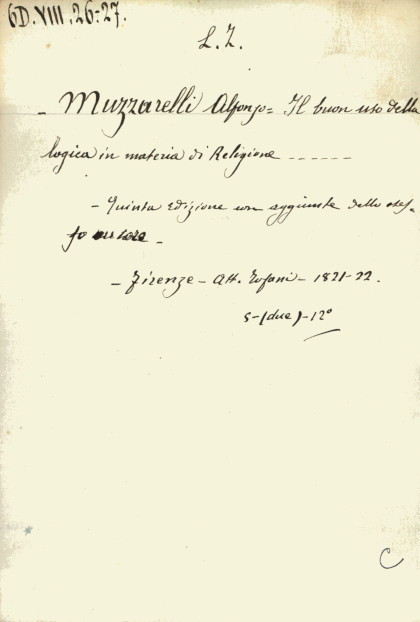 6D.VIII.26-27.
L. Z.
- Muzzarelli Alfonso = Il buon uso della
logica in materia di Religione ------
- Quinta edizione con aggiunte dello stes-
so autore -
- Firenze - Att. Tofani - 1821-22.
5-(due)-12°
C